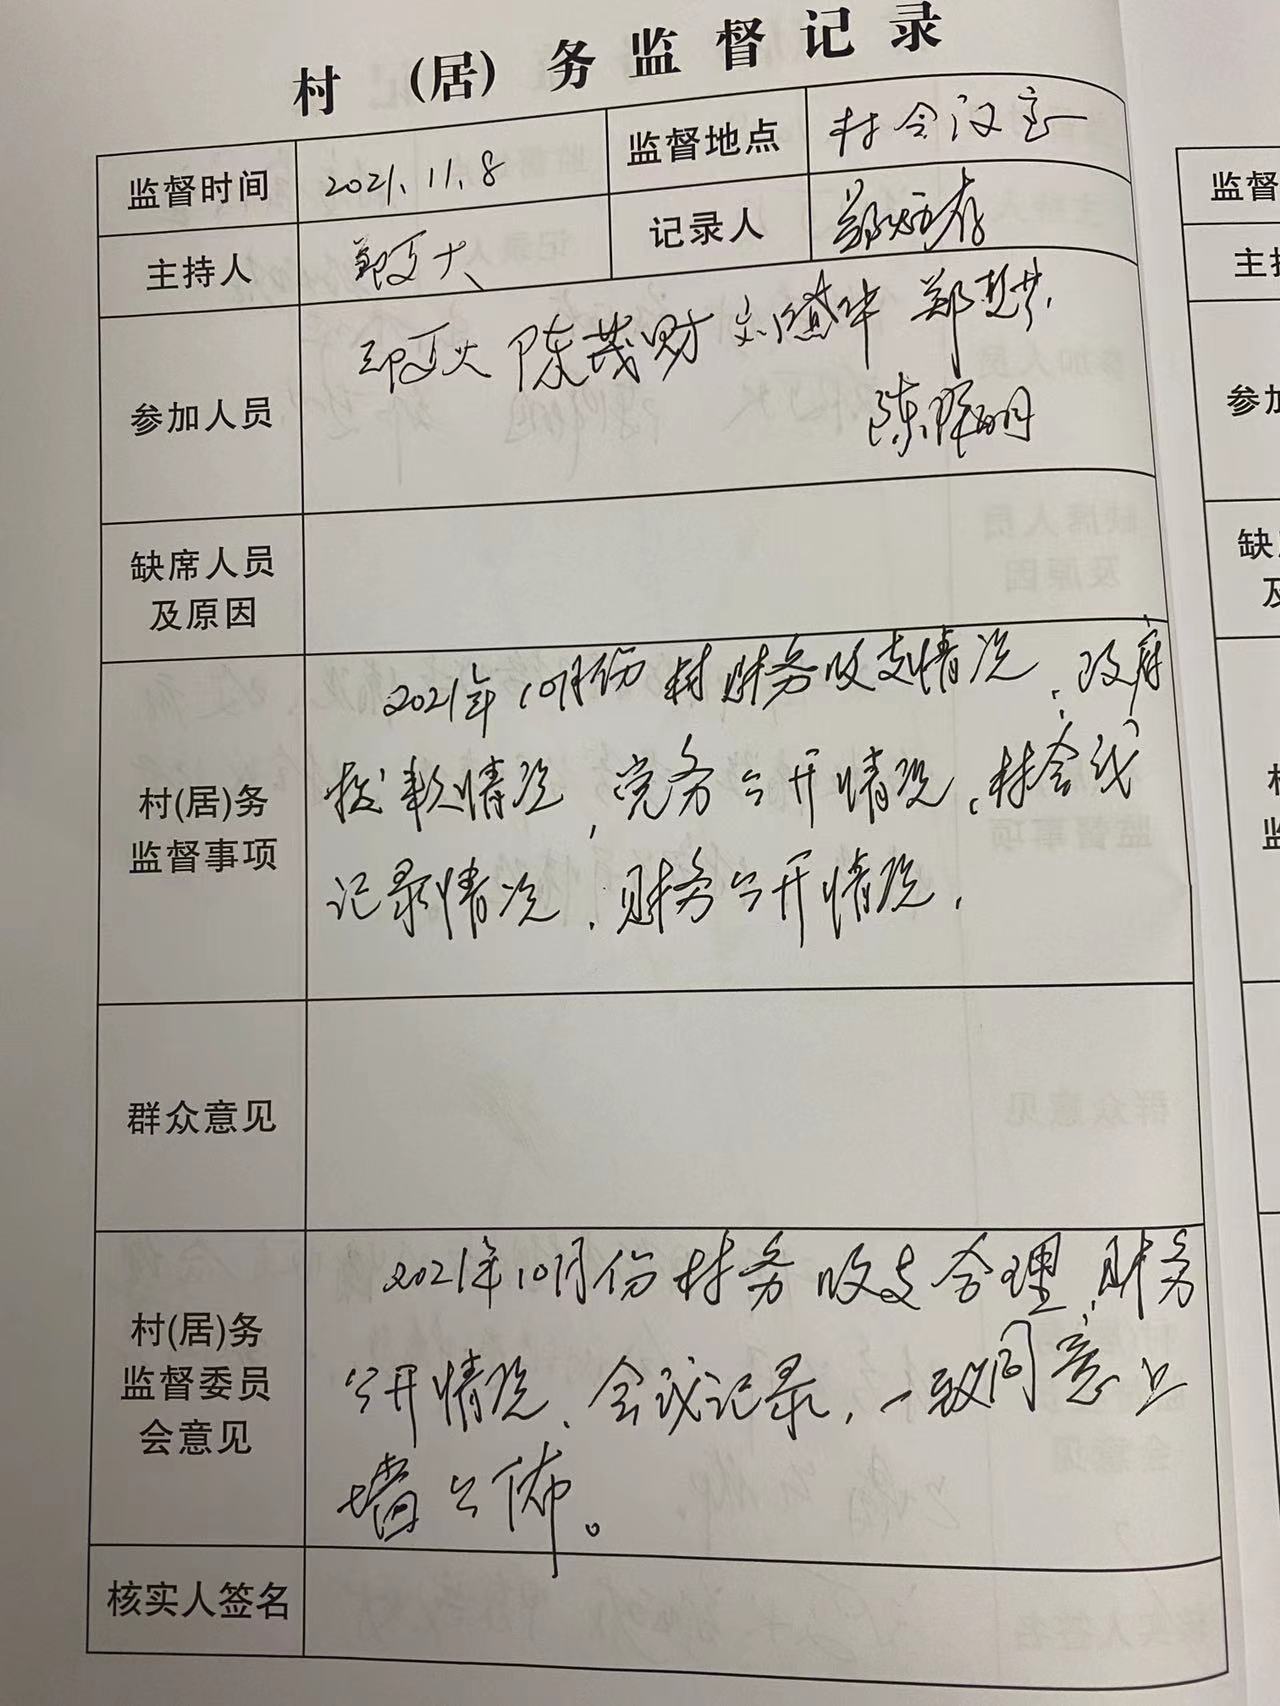 村 （居）务监督记录
监督时间 2021.11.8 监督地点 村会议室
主持人 记录人
参加人员 陈茂财 郑
陈 明
缺席人员
及原因
村(居)务
监督事项
2021年10月份村财务收支情况、政府
拨款情况、党务公开情况、村会议
记录情况、财务公开情况.
群众意见
村(居)务
监督委员
会意见
2021年10月份村务收支合理,财务
公开情况、会议记录,一致同意上
墙公佈。
核实人签名
监督
主持
参加
缺
及